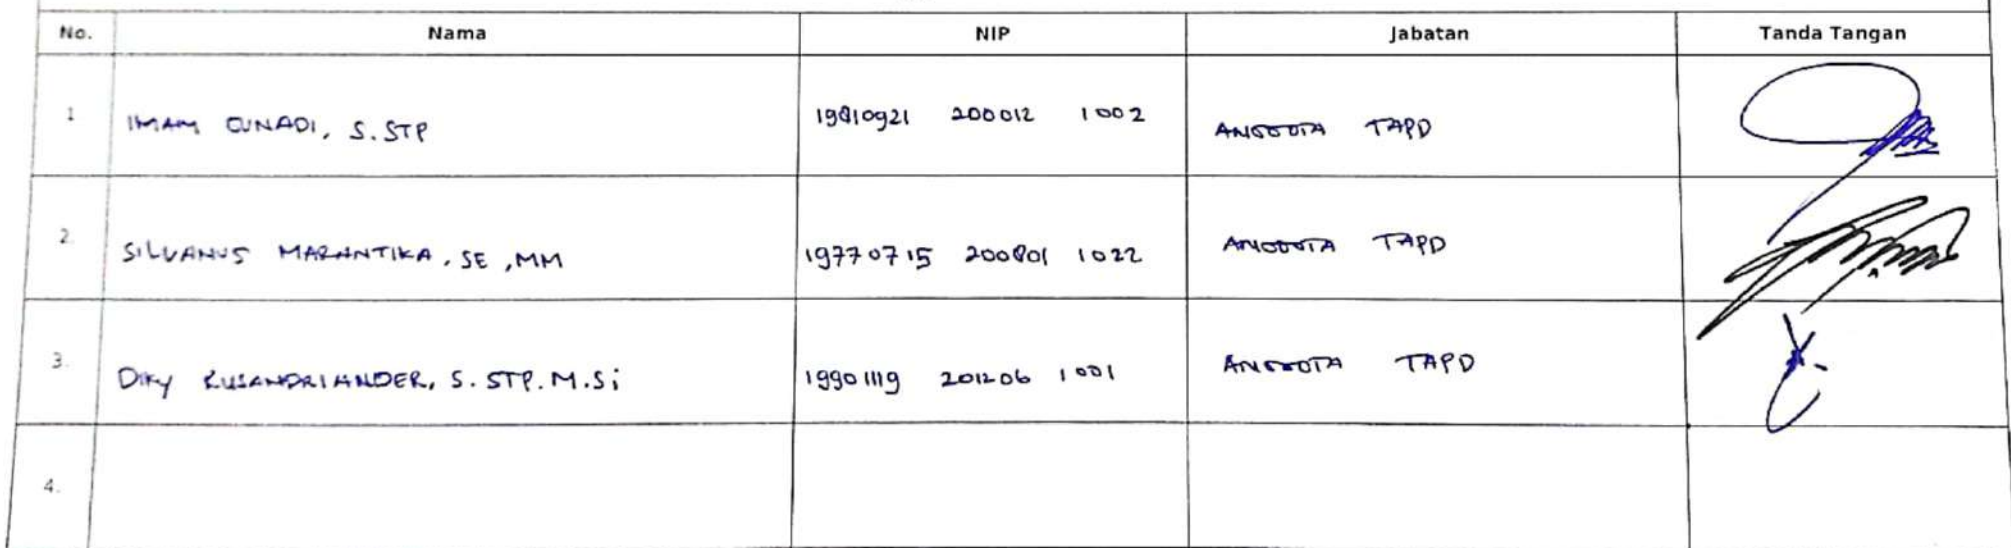 No. Nama NIP Jabatan Tanda Tangan
1 IMAM GUNADI, S.STP 19810921 200012 1002 ANGGOTA TAPD
2. SILVANUS MARANTIKA, SE, MM 19770715 200801 1022 ANGGOTA TAPD
3. DIKY RUSANDRIANDER, S.STP.M.Si 19901119 201206 1001 ANGGOTA TAPD
4.